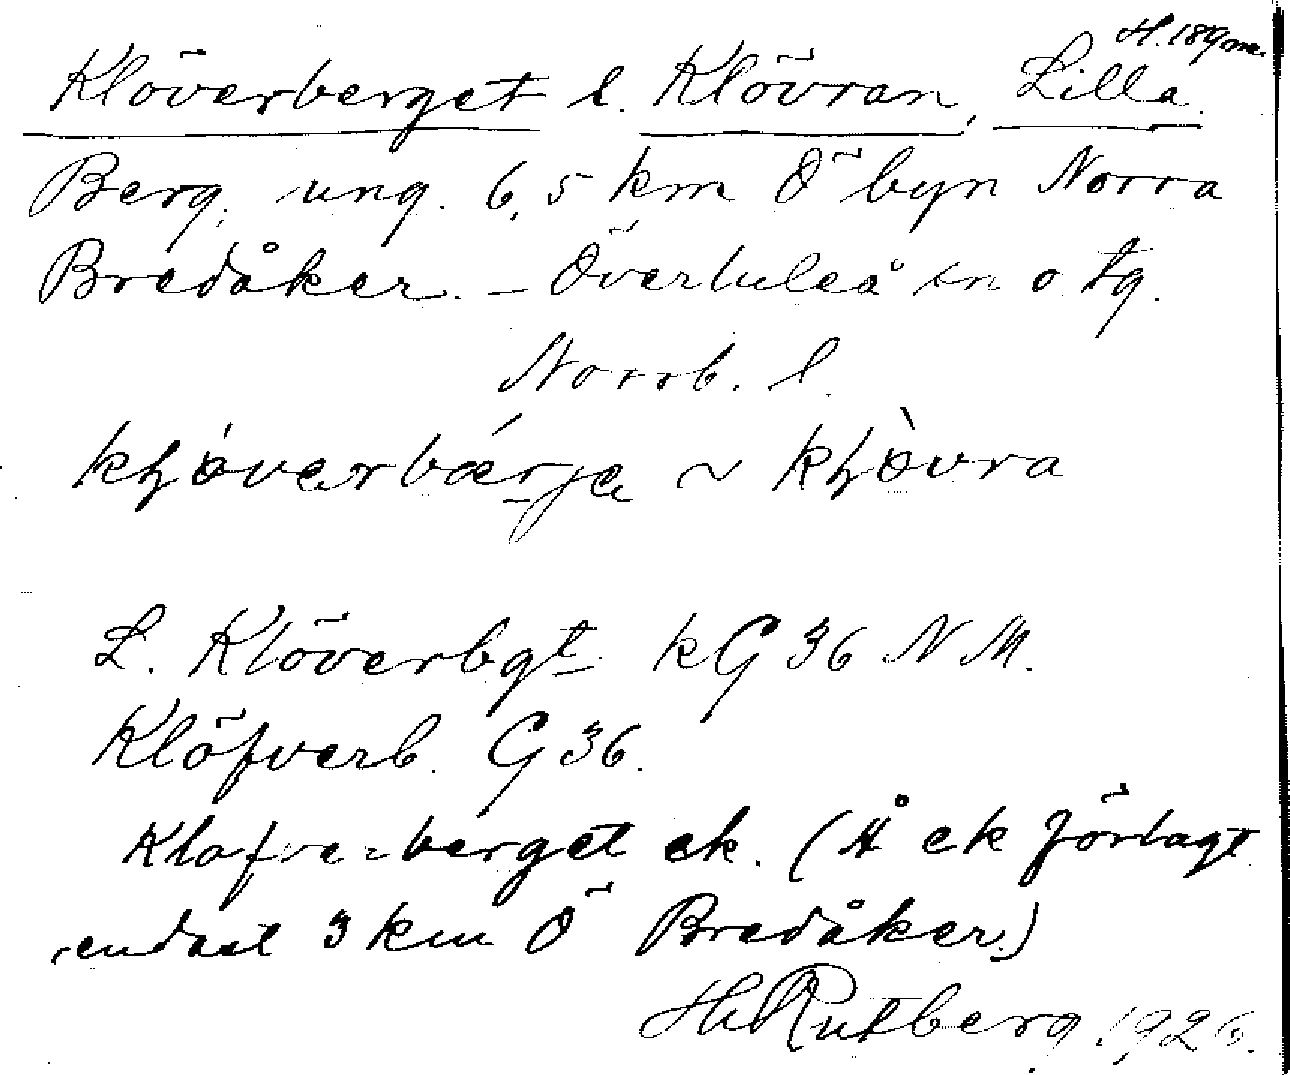 H. 189 m.
Klöverberget l. Klövran, Lilla.
Berg, ung. 6,5 km Ö byn Norra
Bredåker. – Överluleå sn o. tg.
Norrb. l.
~
L. Klöverbgt kG 36 NM.
Klöfverb. G 36.
Klöfverberget ek. (Å ek förlagt
endast 3 km Ö Bredåker.)
H. Rutberg 1926.